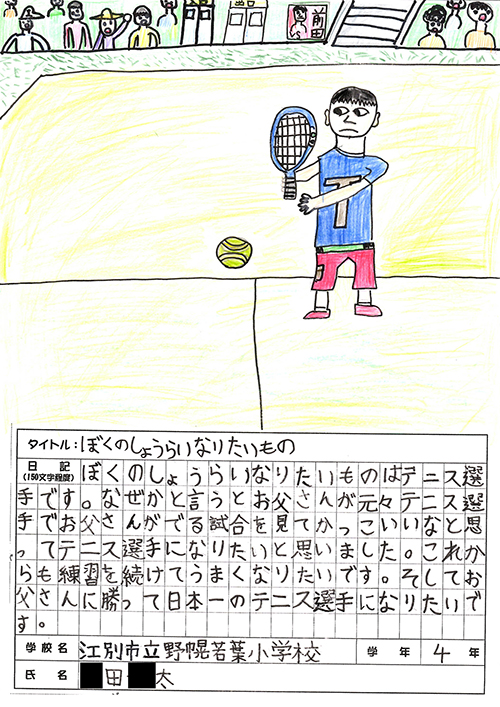 前田
T
タイトル:ぼくのしょうらいなりたいもの
日記
(150文字程度)
ぼくのしょうらいなりたいものはテニス選
手です。なぜかと言うとお父さんが元々テニス選
手でお父さんがでる試合を見てかっこいいなと思
ってテニス選手になりたいと思いました。これか
らも練習を続けてうまくなりたいです。そしてお
父さんに勝って日本一のテニス選手になりたいで
す。
学校名 江別市立野幌若葉小学校 学年 4年
氏名 田 太